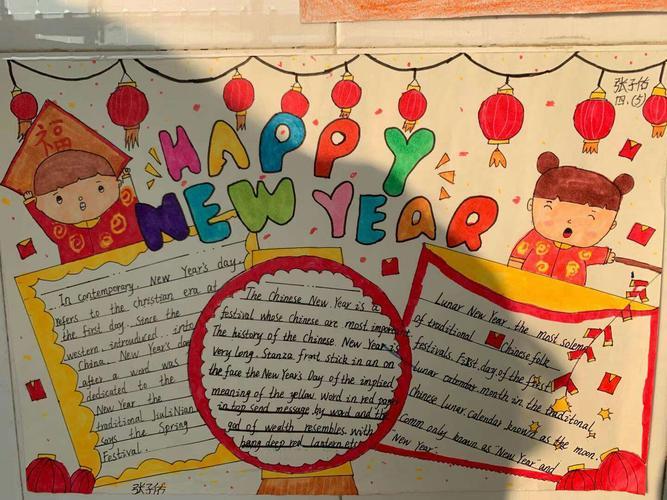 张子佑
四.(5)
福
HAPPY
NEW YEAR
In contemporary. New Year's day.
refers to the christian era at
the first day. Since the
western introduced. into
China. New Year's day
after a word was
dedicated to the
New Year the
traditional JuLiNian
says the Spring
Festival.
The Chinese New Year is a
festival whose Chinese are most important
The history of the Chinese New Year is
very long. Stanza front stick in an on
the face the New Year's Day of the implied
meaning of the yellow word in red paper
in top send message by word and the
god of wealth resembles with
hang deep red lantern.etc
Lunar New Year the most solemn
of traditional Chinese folk
festivals. First day of the first
lunar calendar month in the traditonal
Chinese Lunar.calendar known as the moon.
Comm only known as "New Year and
"New Year".
张子佑